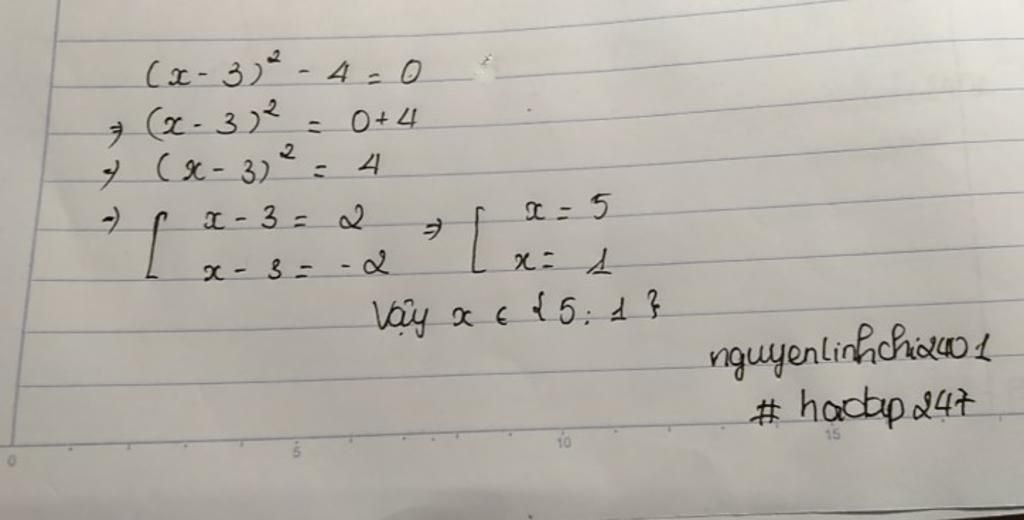 (x - 3)² - 4 = 0
⇒ (x - 3)² = 0+4
⇒ (x - 3)² = 4
⇒ [ x - 3 = 2 ⇒ [ x = 5
x - 3 = -2 x = 1
Vậy x ∈ {5; 1}
nguyenlinhchi2401
# hoctap247
0 5 10 15